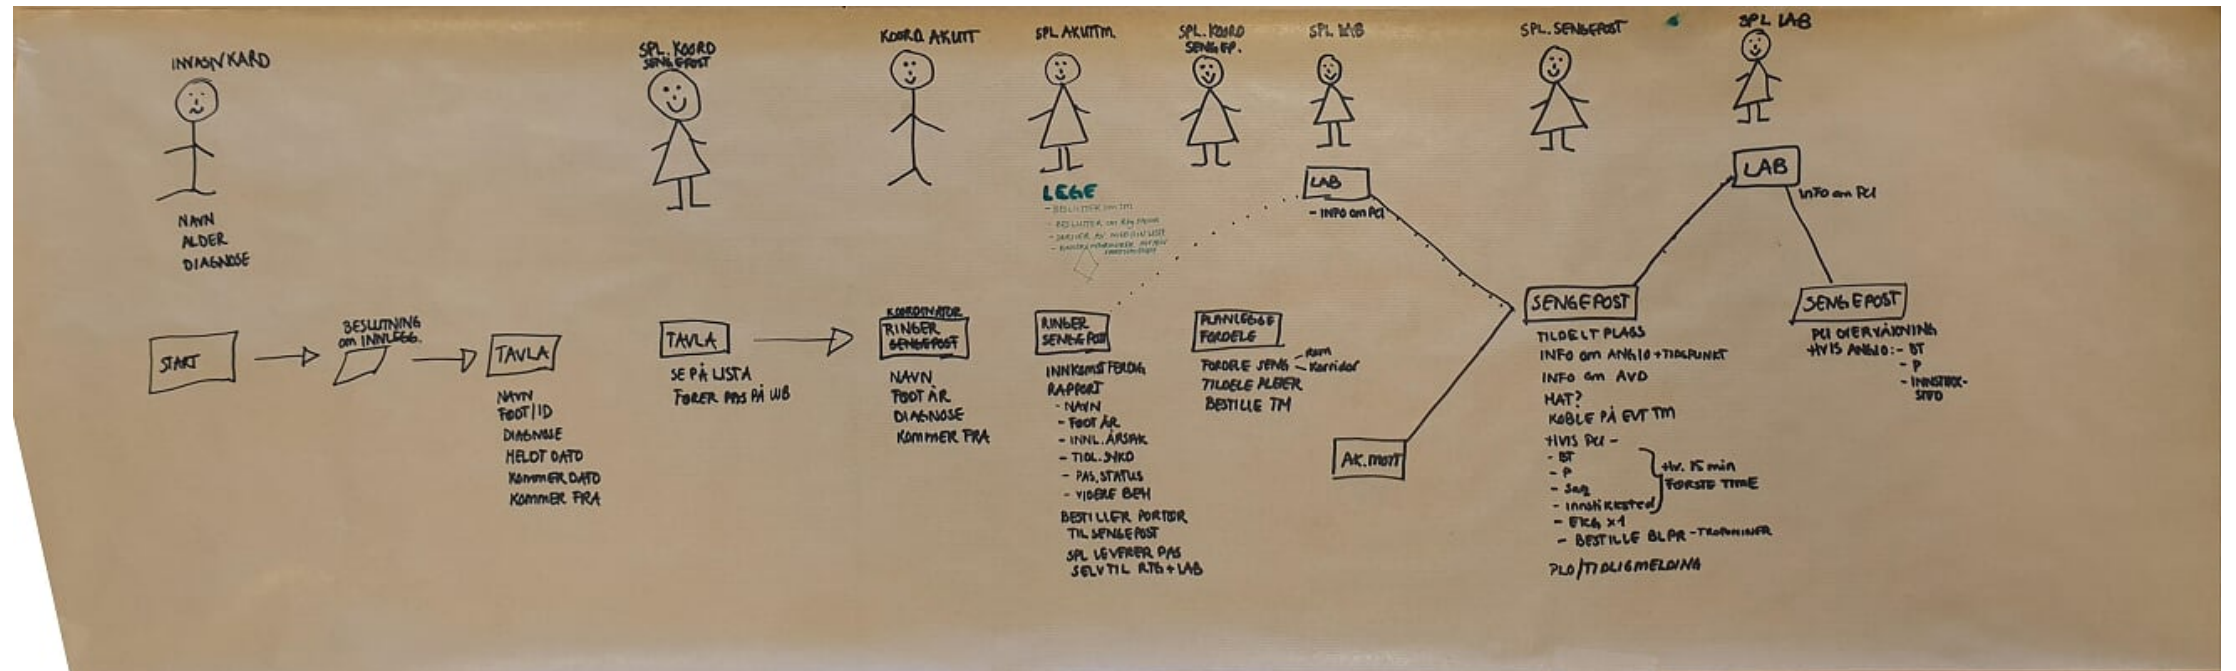 INVASIV KARD
NAVN
ALDER
DIAGNOSE
START
BESLUTNING
om INNLEGG.
TAVLA
NAVN
FØDT/ID
DIAGNOSE
MELDT DATO
KOMMER DATO
KOMMER FRA
SPL. KOORD
SENGEPOST
TAVLA
SE PÅ LISTA
FØRER PAS PÅ WB
KOORD AKUTT
KOORDINATOR
RINGER
SENGEPOST
NAVN
FØDT ÅR
DIAGNOSE
KOMMER FRA
SPL AKUTTM.
LEGE
- BESLUTTER om TM
- BESLUTTER om
RINGER
SENGEPOST
INNKOMST FERDIG
RAPPORT
- NAVN
- FØDT ÅR
- INNL. ÅRSAK
- TIDL. SYKD
- PAS. STATUS
- VIDERE BEH
BESTILLER PORTØR
TIL SENGEPOST
SPL LEVERER PAS
SELV TIL RTG + LAB
SPL. KOORD
SENGEP.
PLANLEGGE
FORDELE
FORDELE SENG - rom
- Korridor
TILDELE PLEIER
BESTILLE TM
SPL LAB
LAB
- INFO om PCI
AK. MOTT
SPL. SENGEPOST
SENGEPOST
TILDELT PLASS
INFO om ANGIO + TIDSPUNKT
INFO om AVD
MAT?
KOBLE PÅ EVT TM
HVIS PCI -
- BT
- P
- Innstikksted
Hv. 15 min
FØRSTE TIME
- EKG x1
- BESTILLE BLPR - TROPONINER
PLO/TIDLIGMELDING
SPL LAB
LAB
INFO om PCI
SENGEPOST
PCI OVERVÅKNING
HVIS ANGIO: - BT
- P
- INNSTIKK-
STED